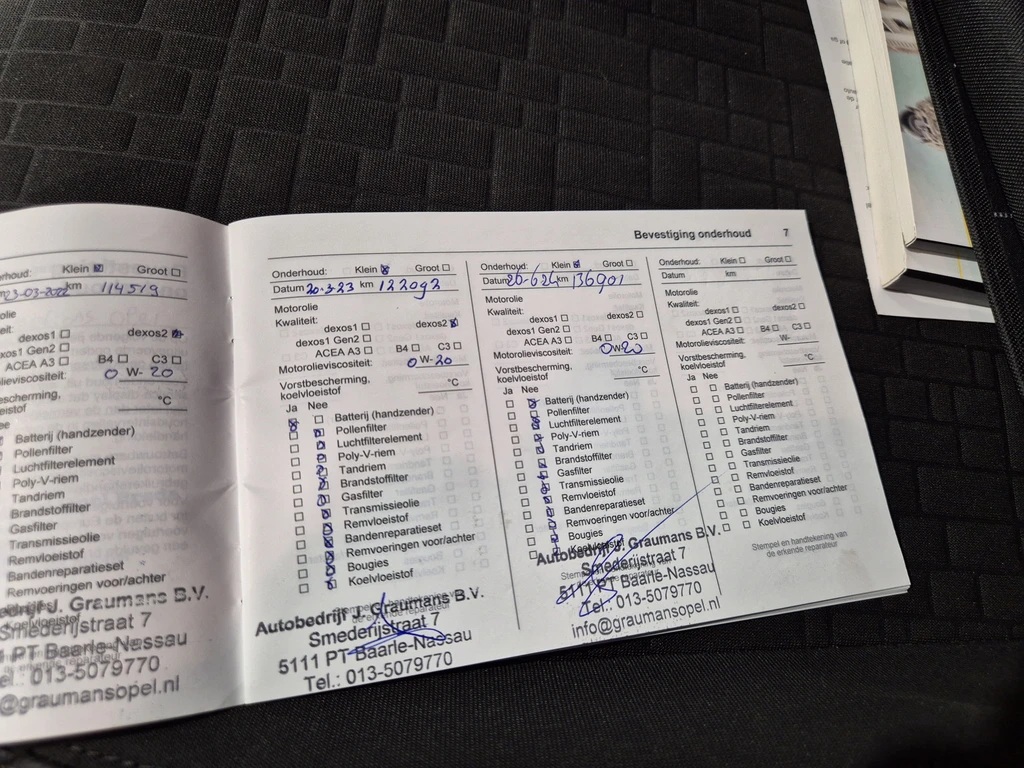 Bevestiging onderhoud 7
rhoud: Klein ☒ Groot ☐
23-03-2022 km 114519
olie
eit:
dexos1 ☐ dexos2 ☒
xos1 Gen2 ☐
ACEA A3 ☐ B4 ☐ C3 ☐
olieviscositeit: 0 W- 20
escherming,
eistof °C
ee
Batterij (handzender)
Pollenfilter
Luchtfilterelement
Poly-V-riem
Tandriem
Brandstoffilter
Gasfilter
Transmissieolie
Remvloeistof
Bandenreparatieset
Remvoeringen voor/achter
edrijf J. Graumans B.V.
Smederijstraat 7
1 PT Baarle-Nassau
el.: 013-5079770
@graumansopel.nl
Onderhoud: Klein ☒ Groot ☐
Datum 20-3-23 km 122092
Motorolie
Kwaliteit:
dexos1 ☐ dexos2 ☒
dexos1 Gen2 ☐
ACEA A3 ☐ B4 ☐ C3 ☐
Motorolieviscositeit: 0 W- 20
Vorstbescherming,
koelvloeistof °C
Ja Nee
Batterij (handzender)
Pollenfilter
Luchtfilterelement
Poly-V-riem
Tandriem
Brandstoffilter
Gasfilter
Transmissieolie
Remvloeistof
Bandenreparatieset
Remvoeringen voor/achter
Bougies
Koelvloeistof
Autobedrijf J. Graumans B.V.
Smederijstraat 7
5111 PT Baarle-Nassau
Tel.: 013-5079770
Onderhoud: Klein ☒ Groot ☐
Datum 20-6-24 km 136901
Motorolie
Kwaliteit:
dexos1 ☐ dexos2 ☐
dexos1 Gen2 ☐
ACEA A3 ☐ B4 ☐ C3 ☐
Motorolieviscositeit: 0 W- 20
Vorstbescherming,
koelvloeistof °C
Ja Nee
Batterij (handzender)
Pollenfilter
Luchtfilterelement
Poly-V-riem
Tandriem
Brandstoffilter
Gasfilter
Transmissieolie
Remvloeistof
Bandenreparatieset
Remvoeringen voor/achter
Bougies
Koelvloeistof
Autobedrijf J. Graumans B.V.
Smederijstraat 7
5111 PT Baarle-Nassau
Tel.: 013-5079770
info@graumansopel.nl
Onderhoud: Klein ☐ Groot ☐
Datum km
Motorolie
Kwaliteit:
dexos1 ☐ dexos2 ☐
dexos1 Gen2 ☐
ACEA A3 ☐ B4 ☐ C3 ☐
Motorolieviscositeit: W-
Vorstbescherming,
koelvloeistof °C
Ja Nee
Batterij (handzender)
Pollenfilter
Luchtfilterelement
Poly-V-riem
Tandriem
Brandstoffilter
Gasfilter
Transmissieolie
Remvloeistof
Bandenreparatieset
Remvoeringen voor/achter
Bougies
Koelvloeistof
Stempel en handtekening van
de erkende reparateur